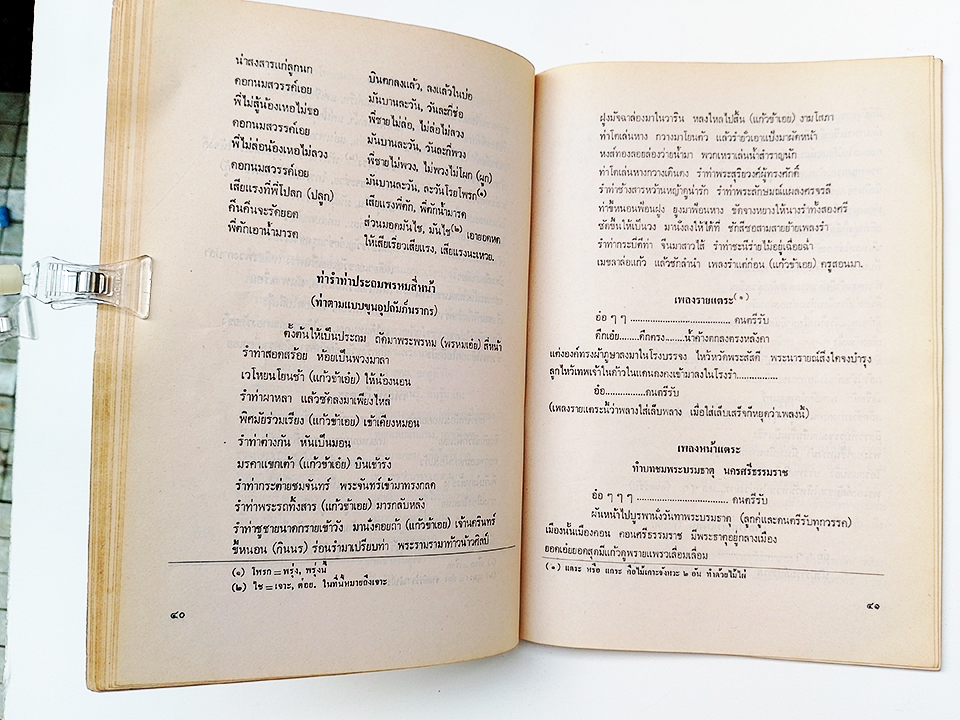 น่าสงสารแก่ลูกนก บินตกลงแล้ว, ลงแล้วในบ่อ
ดอกนมสวรรค์เอย มันบานละวัน, วันละกี่ช่อ
พี่ไม่สู้น้องเหอไม่ขอ พี่ชายไม่ล่อ, ไม่ล่อไม่ลวง
ดอกนมสวรรค์เอย มันบานละวัน, วันละกี่พวง
พี่ไม่ล่อน้องเหอไม่ลวง พี่ชายไม่พวง, ไม่พวงไม่โผก (ผูก)
ดอกนมสวรรค์เอย มันบานละวัน, ละวันโรยโพรก(๑)
เสียแรงที่พี่โปลก (ปลูก) เสียแรงพี่ตัก, พี่ตักน้ำมารด
คืนคืนจะรัดยอด ส่วนมอดมันไช, มันไช(๒) เอายอดหด
พี่ตักเอาน้ำมารด ให้เสียเรี่ยวเสียแรง, เสียแรงนะเหวย.
ท่ารำท่าประถมพรหมสี่หน้า
(ท่าตามแบบขุนอุปถัมภ์นรากร)
ตั้งต้นให้เป็นประถม ถัดมาพระพรหม (พรหมเอ๋ย) สี่หน้า
รำท่าสอดสร้อย ห้อยเป็นพวงมาลา
เวโหยนโยนช้า (แก้วข้าเอ๋ย) ให้น้องนอน
รำท่าผาหลา แล้วซัดลงมาเพียงไหล่
พิศมัยร่วมเรียง (แก้วข้าเอย) เข้าเคียงหมอน
รำท่าต่างกัน หันเป็นมอน
มรคาแขกเต้า (แก้วข้าเอ๋ย) บินเข้ารัง
รำท่ากระต่ายชมจันทร์ พระจันทร์เข้ามาทรงกลด
รำท่าพระรถทิ้งสาร (แก้วข้าเอย) มารกลับหลัง
รำท่าชูชายนาดกรายเข้าวัง มานั่งคอยถ้า (แก้วข้าเอย) เจ้านครินทร์
ขี้หนอน (กินนร) ร่อนรำมาเปรียบท่า พระรามรามาท้าวน้าวศิลป์
(๑) โพรก = พรุ่ง, พรุ่งนี้
(๒) ไช = เจาะ, ต่อย. ในที่นี้หมายถึงเจาะ
๔๐
ฝูงมัจฉาล่องมาในวาริน หลงใหลไปสิ้น (แก้วข้าเอ๋ย) งามโสภา
ท่าโตเล่นหาง กวางมาโยนตัว แล้วรำยั่วเอาแป้งมาผัดหน้า
หงส์ทองลอยล่องว่ายน้ำมา พวกเหราเล่นน้ำสำราญนัก
ท่าโตเล่นหางกวางเดินดง รำท่าพระสุริยวงศ์ผู้ทรงศักดิ์
รำท่าช้างสารหว้านหญ้าดูน่ารัก รำท่าพระลักษมณ์แผลงศรจรลี
ท่าขี้หนอนฟ้อนฝูง ยูงมาฟ้อนหาง ขัดจางหยางให้นางรำทั้งสองศรี
ชักขึ้นให้เป็นวง มานั่งลงให้ได้ที่ ชักสีซอสามสายย้ายเพลงรำ
รำท่ากระบี่ตีท่า จีนมาสาวไส้ รำท่าชะนีร่ายไม้อยู่เฉื่อยฉ่ำ
เมขลาล่อแก้ว แล้วชักลำนำ เพลงรำแต่ก่อน (แก้วข้าเอ๋ย) ครูสอนมา.
เพลงรายแตระ(๑)
อ๋อ ๆ ๆ .................................... ดนตรีรับ
ดึกเอ๋ย........ดึกตรง........น้ำค้างตกลงตรงหลังคา
แต่งองค์ทรงผ้าภูษาลงมาในโรงบรรจง ไหว้หวัดพระสัสดี พระนารายณ์สึงไดจงบำรุง
ลูกไหว้เทพเจ้าในก้าวในแดนดงคงเข้ามาลงในโรงรำ...............
อ๋อ...............ดนตรีรับ
(เพลงรายแตระนี้ว่าพลางใส่เล็บพลาง เมื่อใส่เล็บเสร็จก็หยุดว่าเพลงนี้)
เพลงหน้าแตระ
ทำบทชมพระบรมธาตุ นครศรีธรรมราช
อ๋อ ๆ ๆ ๆ ................................. ดนตรีรับ
ผันเหน้าไปบูรพานั่งวันทาพระบรมธาตุ (ลูกคู่และดนตรีรับทุกวรรค)
เมืองนั้นเมืองคอน คอนศรีธรรมราช มีพระธาตุอยู่กลางเมือง
ยอดเอ๋ยยอดสุดมีแก้วดูพรายแพรวเลื่อมเลื่อม
(๑) แตระ หรือ แกระ คือไม้เคาะจังหวะ ๒ อัน ทำด้วยไม้ไผ่
๔๑